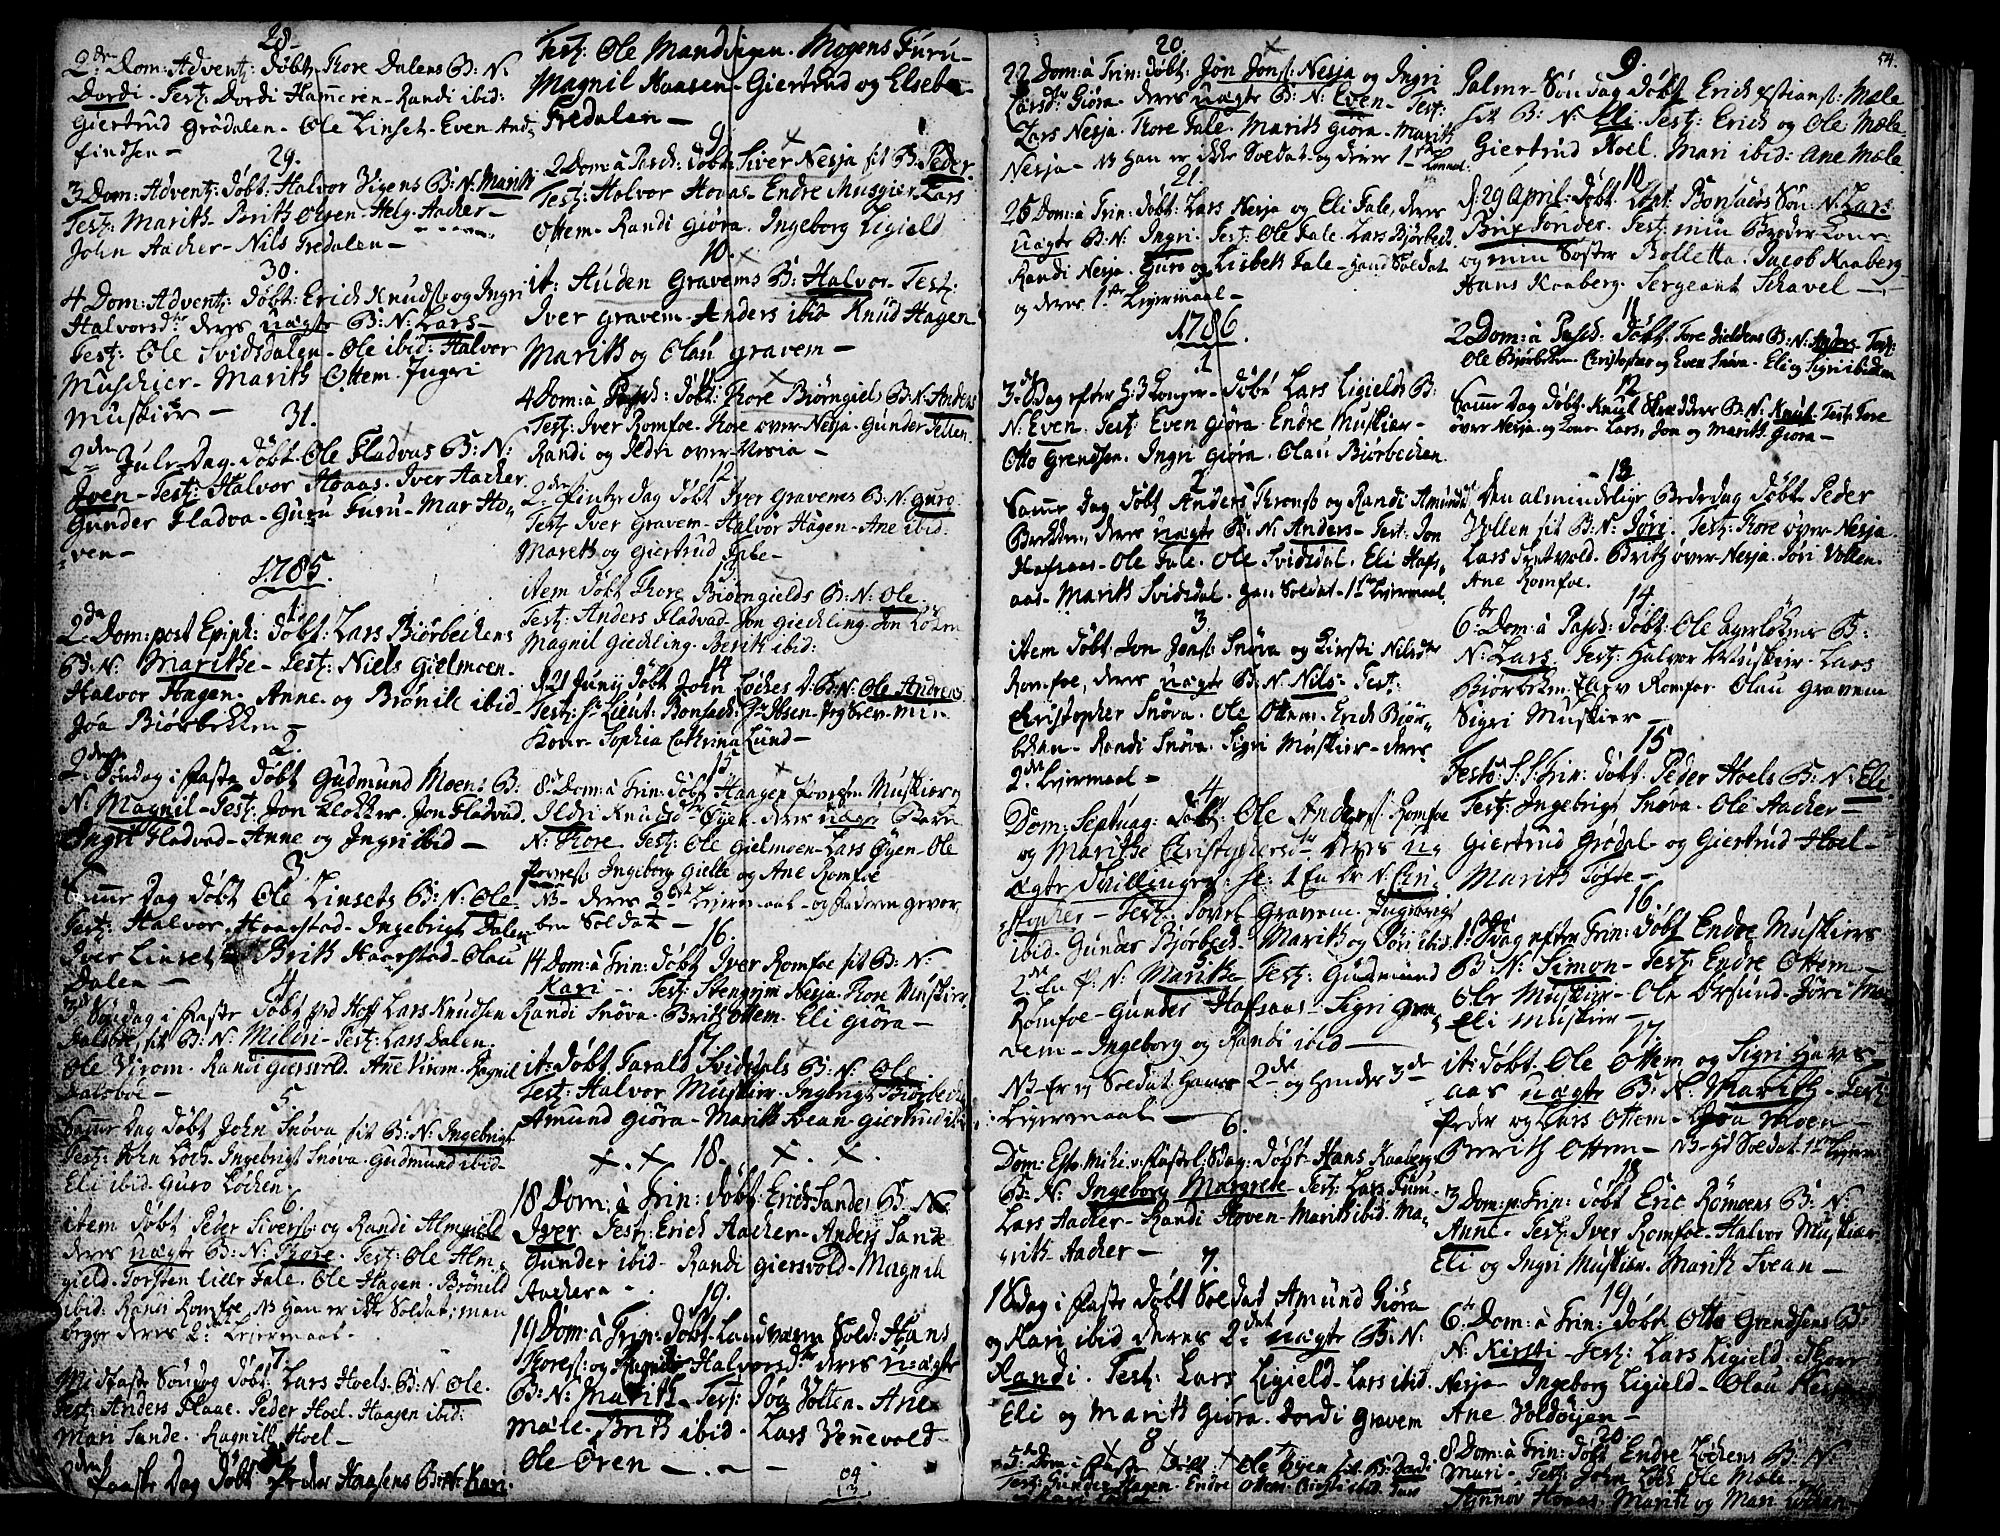 28.
2den Dom: Advent: Døbt: Tore Dalens B: N:
Dordi. Test: Dordi Hammeren. Randi ibid:
Giertrud Grødalen. Ole Linset. Even And,
findsen —
29.
3 Dom: Advent: Døbt: Halvor Vigens B: N: Marith
Test: Marith. Brith Olsen. Helg. Aacher —
John Aacher. Nils Fredalen —
30.
4 Dom: Advent: Døbt: Erich Knuds: og Ingri
Halvorsdtr deres uægte B: N: Lars —
Test: Ole Svidsdalen. Ole ibid: Halvor
Muschier. Marith Ottem. Ingri
Muskier —
31.
2den Jule Dag. Døbt Ole Fladvas B: N:
Iven. Test: Halvor Hoaas. Iver Aacher
Gunder Fladva. Guru Furu. Mar Ho,
ven —
1785.
1
2de Dom: post Epiph: Døbt: Lars Biørbechens
B: N: Marithe. Test: Niels Gielmoen.
Halvor Hagen. Anne og Brønild ibid.
Joa Biørbekken —
2.
2den Søndag i Faste Døbt Gudmund Moens B:
N: Magnil. Test: Jon Klokker. Jon Fladvad
Ingrl Fladvad. Anne og Ingri ibid —
3
Samme Dag Døbt Ole Linsets B: N: Ole
Test: Halvor Haarstad. Ingebrigt Dalen
Iver Linset Brith Haarstad. Olau
Dalen —
4
3die Søndag i Faste Døbt Lars Knudsen
Dalsbøe, sit B: N: Milin. Test: Lars Dalen.
Ole Virom. Randi Giersvold. Ane Virem. Ragnil
Dalsbøe —
5
Samme Dag Døbt John Snøva sit B: N: Ingebrigt
Test: John Løch. Ingebrigt Snøva. Gudmund ibid.
Eli ibid. Guro Løchen.
6
item Døbt Peder Sivers: og Randi Almgield
deres uægte B: N: Tore. Test: Ole Alm,
gield. Torsten Lille Fale. Ole Hagen. Brønild
ibid: Randi Romfoe. NB Han er ikke Soldat, men
begge deres 2det Leiermaal.
7
Midfaste Søndag Døbt: Lars Hoels B: N: Ole.
Test: Anders Flaae. Peder Hoel. Haagen ibid:
Mari Sande. Ragnild Hoel —
8
2den Paaske Dag Døbt Peder Haasens B: N: Kari.
Test: Ole Mand. Mogens Furu.
Magnil Haasen. Giertrud og Elsebe
Fredalen —
9
2 Dom: à Pasch: Døbt Siver Nesja sit B: Peder.
Test: Halvor Hoaas. Endre Musgier. Lars
Ottem. Randi Giøra. Ingeborg Ligield
10.
it: Auden Gravems B: Halvor. Test:
Iver Gravem. Anders ibid. Knud Hagen
Marith og Olau Gravem —
11
4 Dom: à Pasch: Døbt: Tore Biørngiels B: N: Anders
Test: Iver Romfoe. Tore over Nesja. Gunder
Randi og Ildri over Nesia —
12
2den Pintze Dag Døbt Iver Gravems B: N: Guro
Test: Iver Gravem. Halvor Hagen. Ane ibid.
Mareth og Giertrud —
13
item Døbt Tore Biørngields B: N: Ole.
Test: Anders Fladvad. Jon Giechling. Jon
Magnil Giechling. Berith ibid:
14
d. 21 Junij Døbt John Løches B: N: Ole Andreas
Test: Lieut: Bonsach. Ibsen. min
Kone. Sophia Cathrina Lund —
15
8 Dom: à Trin: Døbt Haagen Muskier og
Ildri Knudsdtr Øyen. deres uægte Barn
N: Tore Test: Ole Gielmoen. Lars Øyen. Ole
Ingeborg Gielle og Ane Romfoe
NB. deres 2det Leiermaal. og Faderen gevor,
ben Soldat —
16.
14 Dom: à Trin: Døbt Iver Romfoe sit B: N:
Kari. Test: Stengrim Nesja. Tore Muskier
Randi Snøva. Brith Ottem. Eli Giøra —
17
it: Døbt Tarald Svidsdals B: N: Ole.
Test: Halvor Muskier. Ingebrigt Biørbech
Amund Giøra. Marith Svean Giertrud ib
18.
18 Dom: à Trin: Døbt: Erich Sandes B: N:
Iver Test: Erich Aacher. Anders Sande
Gunder ibid. Randi Giersvold. Magnil
Aachera —
19.
19 Dom: à Trin: Døbt Landværn Sold: Hans
Tores: og Ragnild Halvorsdtr deres uægte
B: N: Marith. Test: Joa Volten. Ane
Mæle. Brith ibid. Lars Vennevold.
Ole Ören —
20.
54.
22 Dom: à Trin: Døbt: Jon Jons: Nesja og Ingri
Larsdtr Giøra. deres uægte B: N: Even. Test:
Lars Nesja. Tore Fale. Marith Giøra. Marith
Nesja. NB Han er ikke Soldat og deres 1ste
21.
26 Dom: à Trin: Døbt: Lars Nesja og Eli Fale, deres
uægte B: N: Ingri. Test: Ole Fale. Lars Bjørbech
Randi Nesja. Guro og Lisbeth Fale. Hand Soldat
og deres 1ste Leiermaal —
1786.
1
3. Sdag efter H: 3 Konger. Døbt Lars Ligields B:
N: Even. Test: Even Giøra. Endre Muskier.
Otto Grendsen. Ingri Giøra. Olau Biørbechen
2
Samme Dag Døbt Anders Trons: og Randi Amundsd
Brekken, deres uægte B: N: Anders. Test: Jon
Hafsaas. Ole Fale. Ole Svidsdal. Eli Hafs,
aas. Marith Svidsdal. Han Soldat. 1ste Leiermaal
3
item Døbt Jon Jons: Snøva og Kirsti Nilsdtr
Romfoe, deres uægte B: N: Nils. Test:
Christopher Snøva. Ole Ottem. Erich Biør,
bechen. Randi Snøva. Sigri Muskier. deres
2det Leiermaal —
4
Dom: Septuag: Døbt: Ole Anders: Romfoe
og Marithe Christophersdtr deres u,
ægte Tvillinger. 1 En Dr. N: Chri,
stopher. Test: Povel Gravem. Ingebrigt
ibid. Gunder Bjørbech. Marith og Jøri ibid.
5
2de En P. N: Marithe. Test: Gudmund
Romfoe. Gunder Hafsaas. Sigri Gra,
vem. Ingeborg og Randi ibid —
NB Er ej Soldat. Hans 2de og hendes 3de
Leiermaal —
6.
Dom: Esto Mihi v: Fastel: Sdag: Døbt. Hans Kaaberg
B: N: Ingeborg Margrete. Test: Lars Furu.
Lars Aacher. Randi Hoven. Marith ibid. Ma,
rith Aacher —
7.
1 Sdag i Faste Døbt Soldat Amund Giøra
og Kari ibid deres 2det uægte B: N:
Randi. Test: Lars Ligield. Lars ibid.
Eli og Marith Giøra. Dordi Gravem
8
5te Dom: i Faste Døbt Ole Øyen sit B: Dordi
Test: Gunder Hagen. Endre Ottem. Kirsti ibid. Lars
9.
Palme Søndag Døbt Erich xstians: Mæle
sit B: N: Eli. Test: Erich og Ole Mæle
Giertrud Hoel. Mari ibid: Ane Mæle.
10
d. 29 April. Døbt Capt: Bonsachs Søn: N: Lars
Brix Tønder. Test: min Broder Kone
og min Søster Bolletta. Jacob Kaaberg
Hans Kaaberg. Sergeant Schavel —
11
2 Dom: à Pasch: Døbt Tore Gieldens B: N: Anders. Test:
Ole Bjørbechen. Christopher og Even Snøva. Eli og Sigri ibidem
12
Samme Dag Døbt Knut Skrædders B: N: Knut. Test: Tore
over Nesja og Kone. Lars, Jon og Marith Giøra —
13
Den almindelige Bededag Døbt Peder
Vollen sit B: N: Jøri. Test: Tore over Nesja
Lars Brith over Nesja. Jøri Vollen.
Ane Romfoe.
14
6te Dom: à Pasch: Døbt: Ole Agerløkens B:
N: Lars. Test: Halvor Muskier. Lars
Bjørbechen. Ellev Romfoe. Olau Gravem
Sigri Muskier —
15
Festo S. S. Trin: Døbt: Peder Hoels B: N: Eli
Test: Ingebrigt Snøva. Ole Aacher.
Giertrud Grødal og Giertrud Hoel.
Marith Tofte —
16.
1. Sdag efter Trin: Døbt Endre Muskiers
B: N: Simon. Test: Endre Ottem —
Ole Muskier. Ole Ørsund. Jøri
Eli Muskier —
17.
it: Døbt Ole Ottem og Sigri Havs,
aas uægte B: N: Marith. Test:
Peder og Lars Ottem. Joa Moen —
Berith Ottem. NB Hand Soldat. 1ste Leierm
18
3 Dom: p: Trin: Døbt Eric Römoens B: N:
Anne. Test: Iver Romfoe. Halvor Muskier
Eli og Ingri Muskier. Marith Svean —
19
6te Dom: à Trin: Døbt Otto Grendsens B:
N: Kirsti. Test: Lars Ligield. Tore
Nesja. Ingeborg Ligield. Olau Nesja
Ane Voldøyen —
20
8 Dom: à Trin: Døbt Endre Løchens B: N:
Mari. Test: John Løch. Ole Mæle.
Synnøv Hoaas. Marith og Mari Løchen